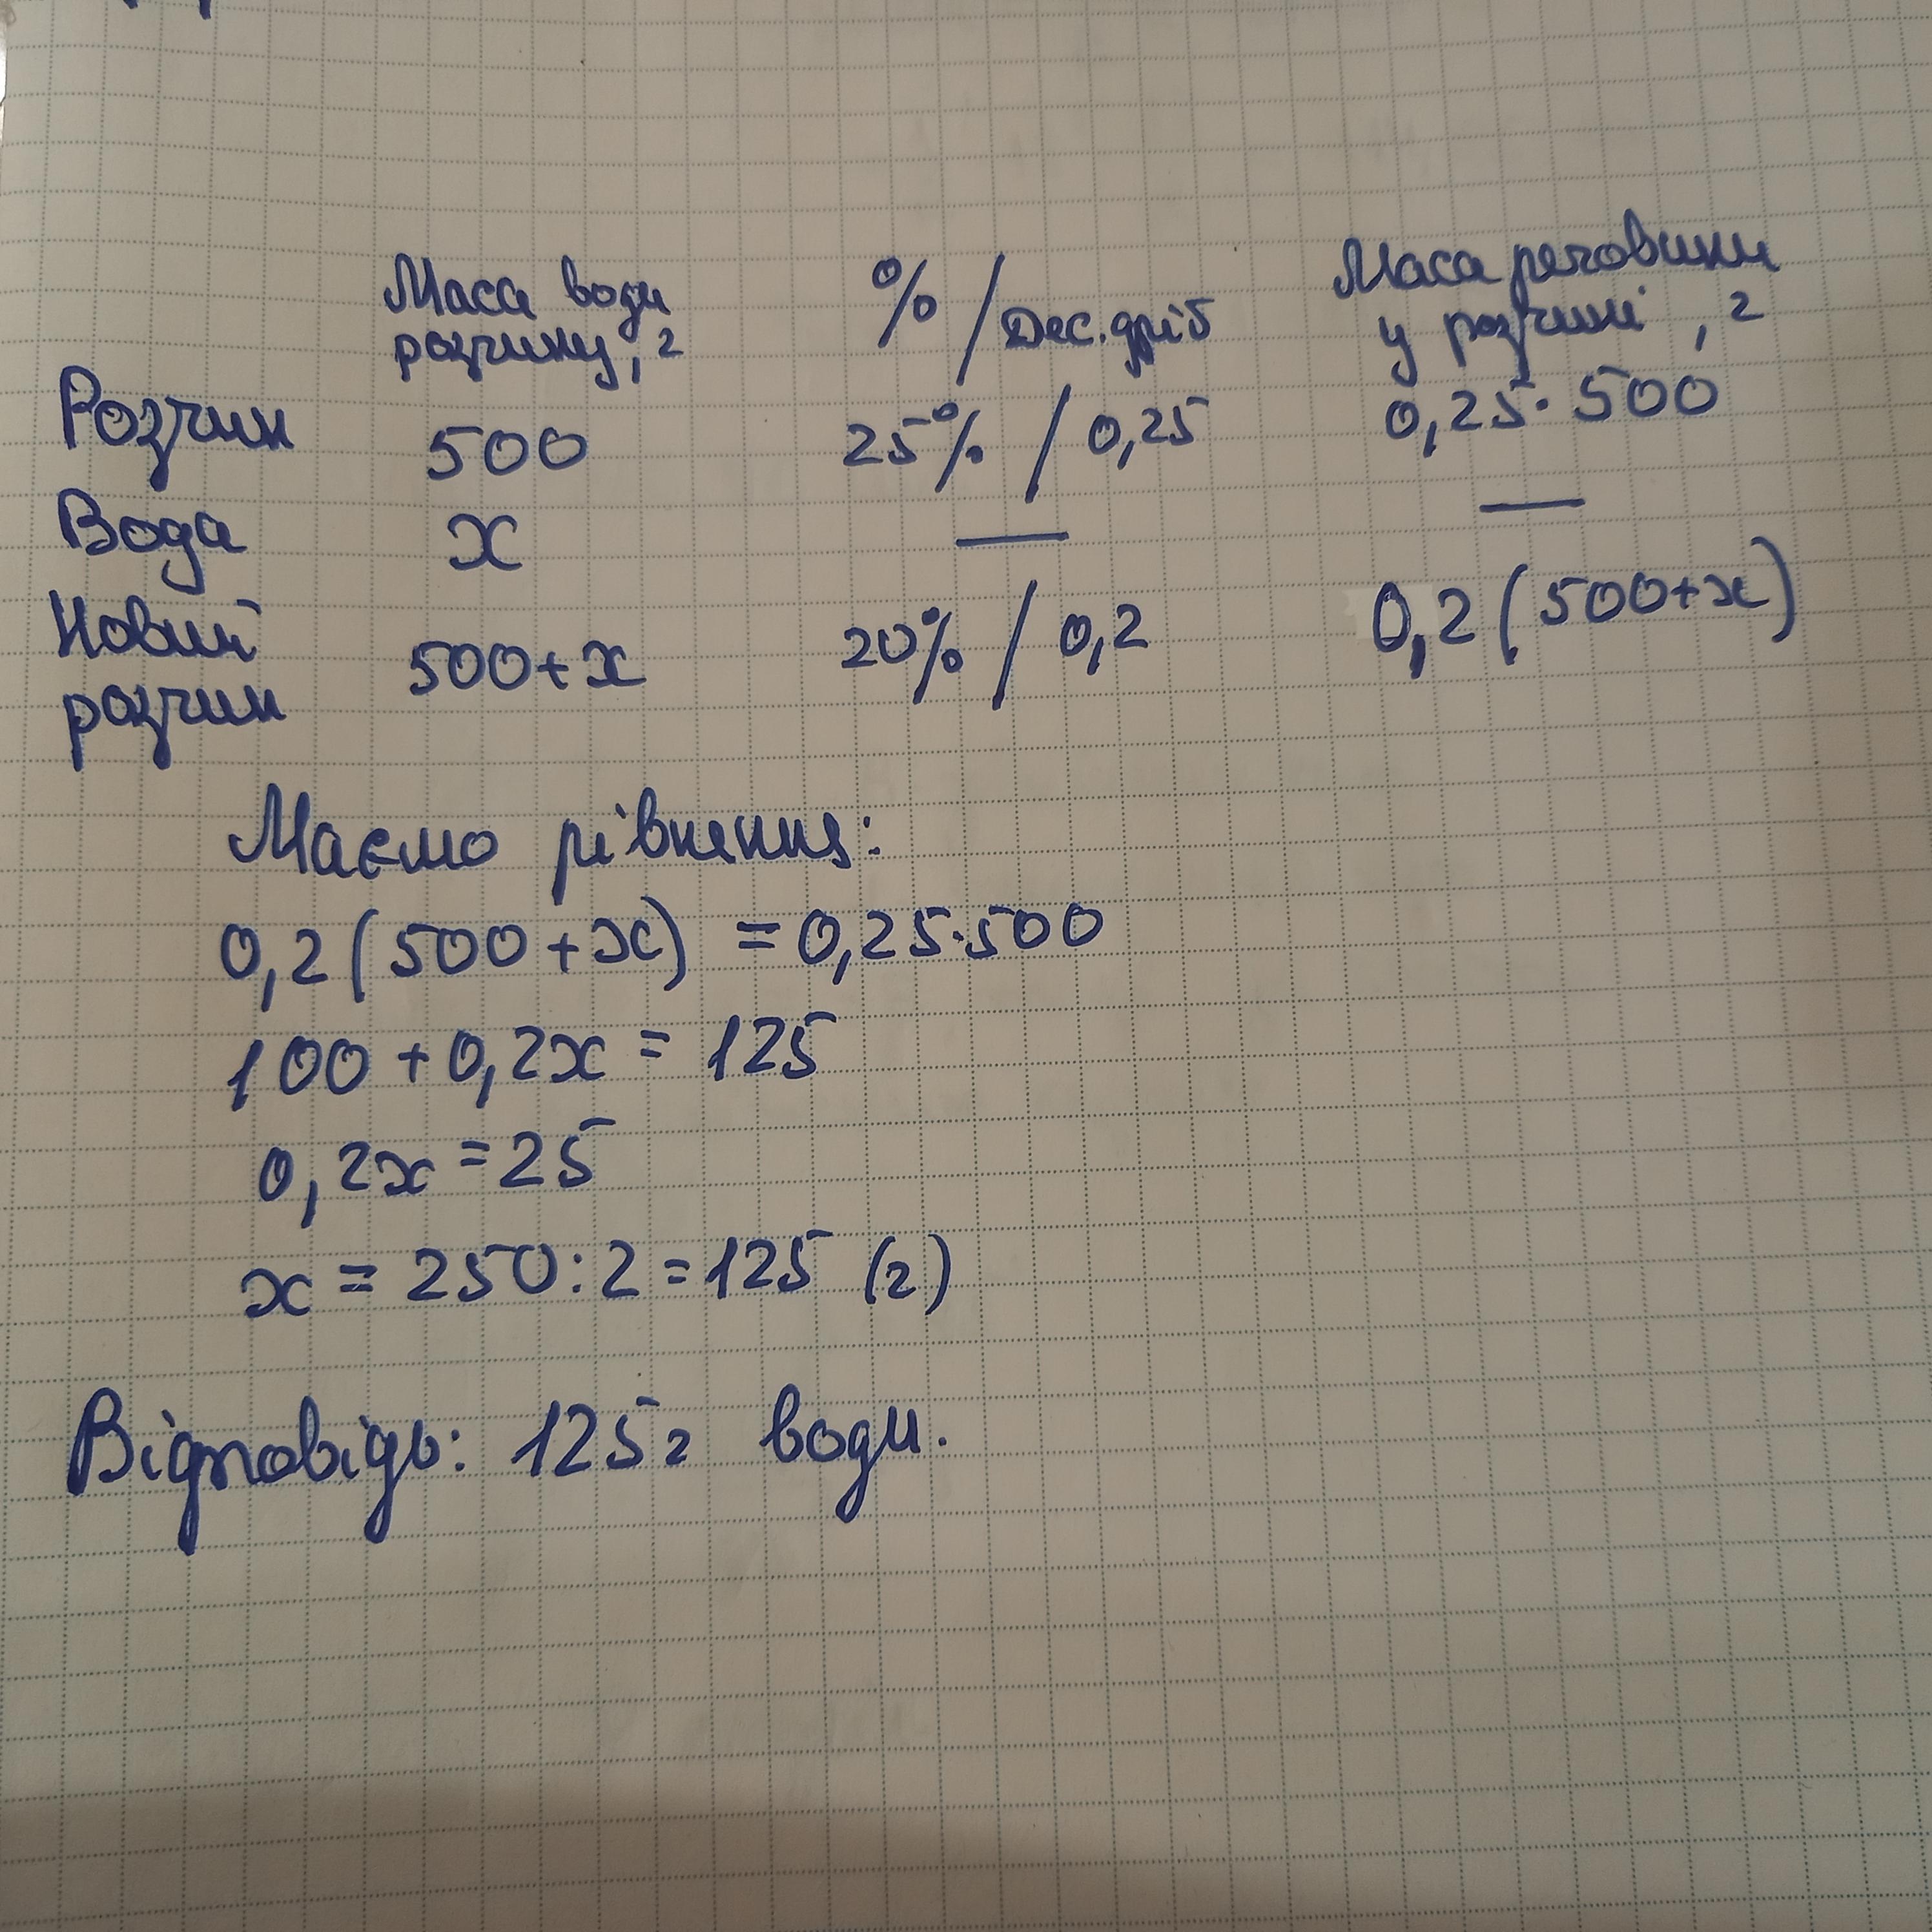 Маса води % / Дес. дріб Маса речовини
розчину, г у розчині, г
Розчин 500 25% / 0,25 0,25·500
Вода x — —
Новий 500+x 20% / 0,2 0,2(500+x)
розчин
Маємо рівняння:
0,2(500+x) = 0,25·500
100 + 0,2x = 125
0,2x = 25
x = 250:2 = 125 (г)
Відповідь: 125г води.